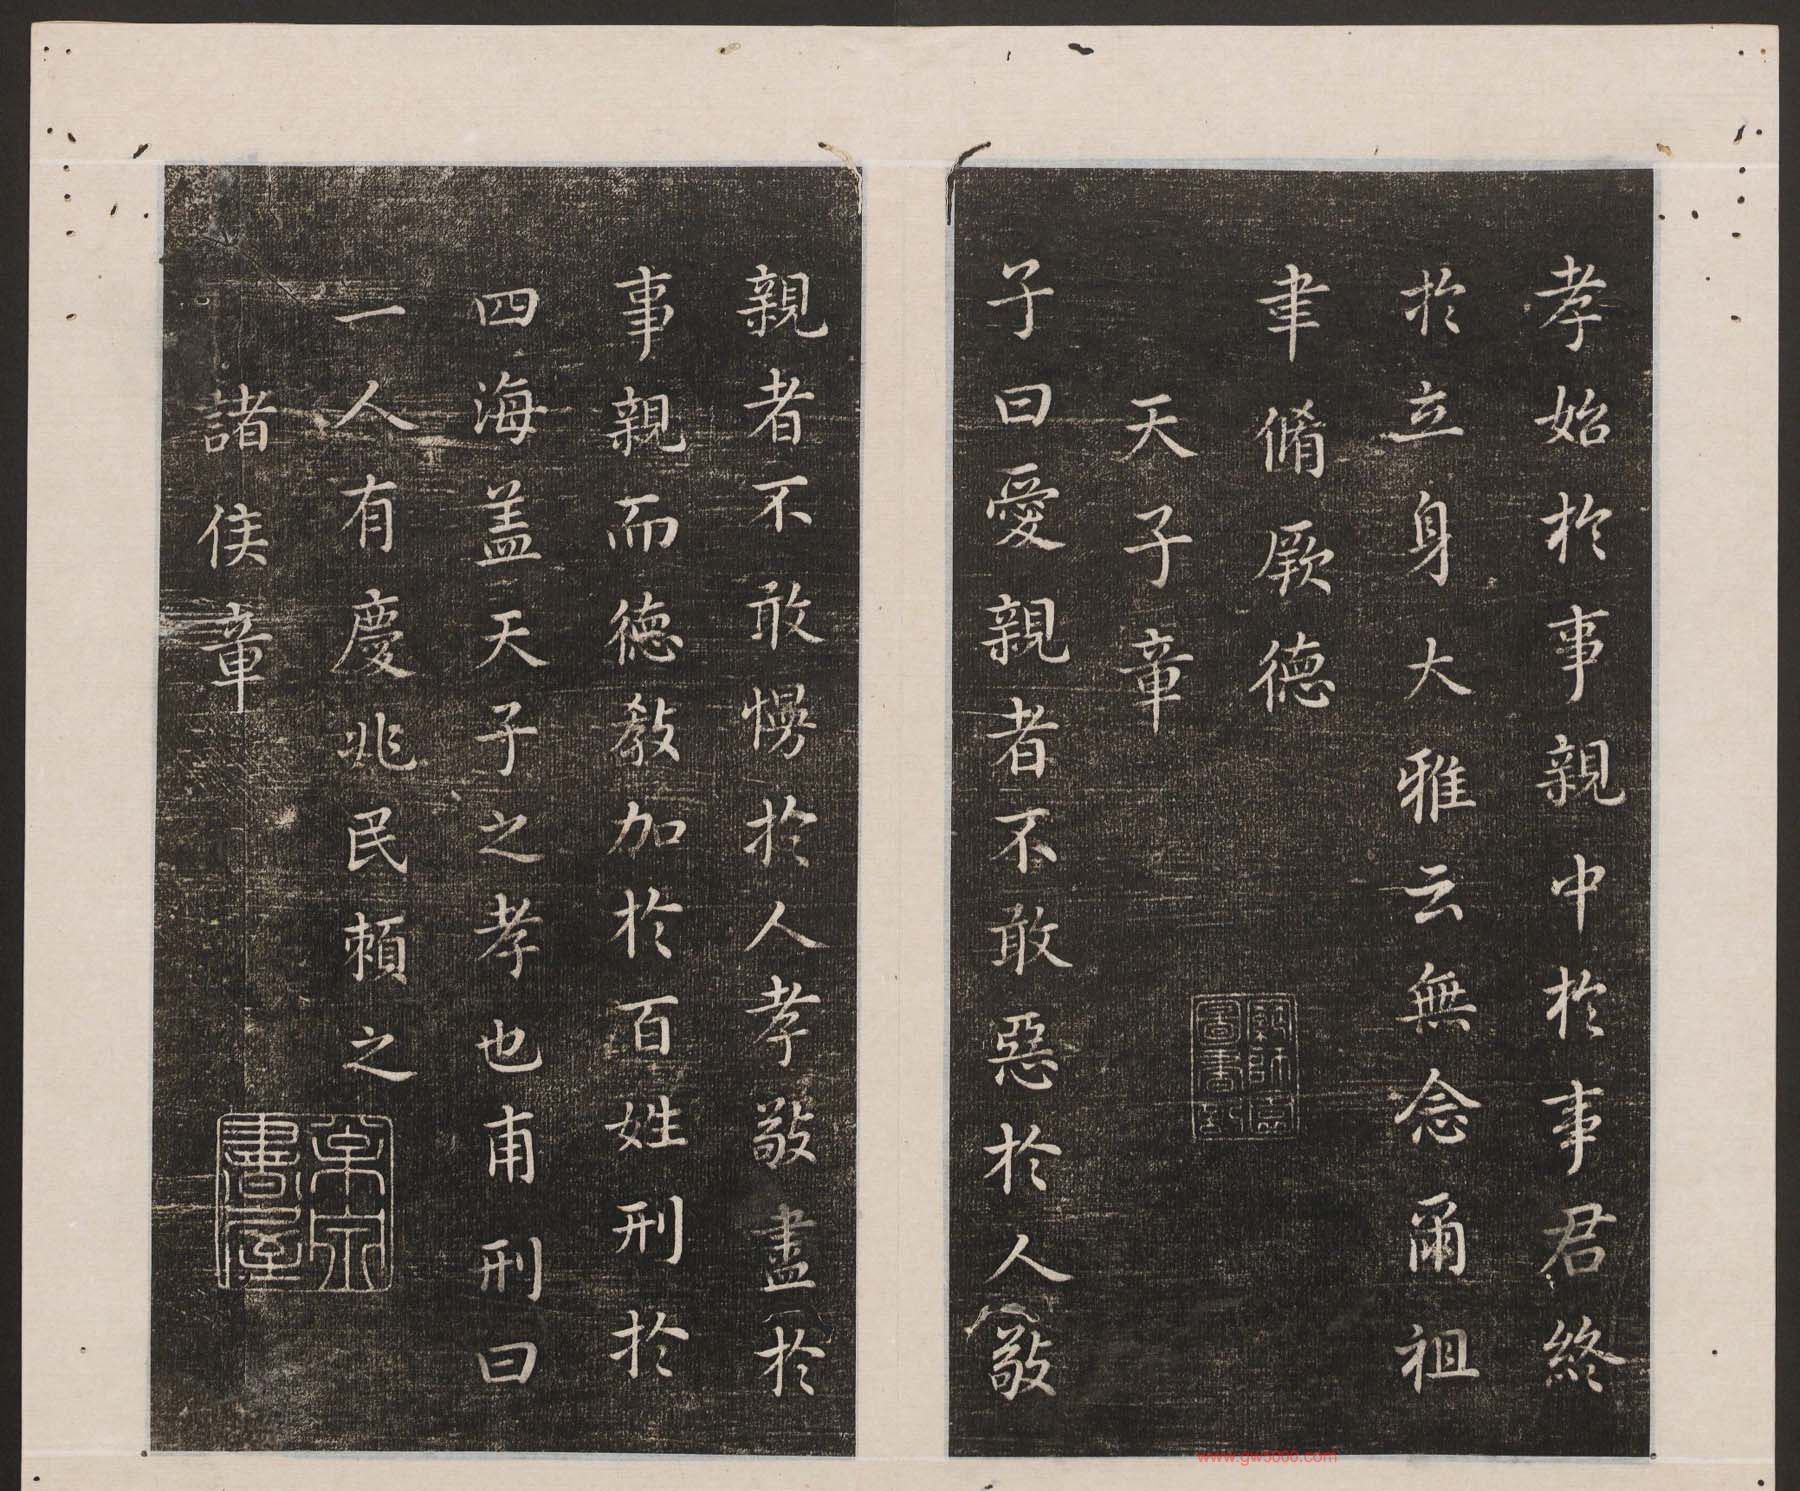 孝始於事親中於事君終
於立身大雅云無念爾祖
聿脩厥德
天子章
子曰愛親者不敢惡於人敬
親者不敢慢於人孝敬盡於
事親而德教加於百姓刑於
四海盖天子之孝也甫刑曰
一人有慶兆民賴之
諸侯章
www.gw5000.com